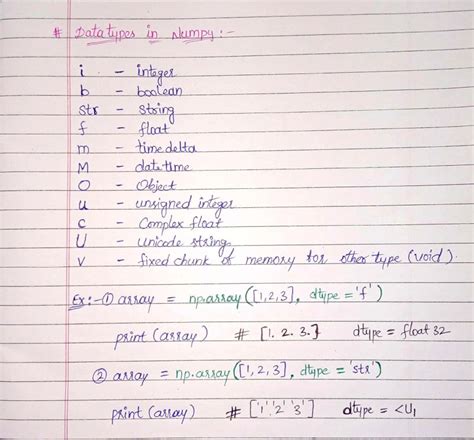 # Data types in Numpy :-
i - integer
b - boolean
str - string
f - float
m - timedelta
M - datetime
O - Object
u - unsigned integer
c - Complex float
U - unicode string
v - fixed chunk of memory for other type (void).
Ex:- ① array = np.array([1,2,3], dtype = 'f')
print (array) # [1. 2. 3.] dtype = float 32
② array = np.array([1,2,3], dtype = 'str')
print (array) # ['1' '2' '3'] dtype = <U1